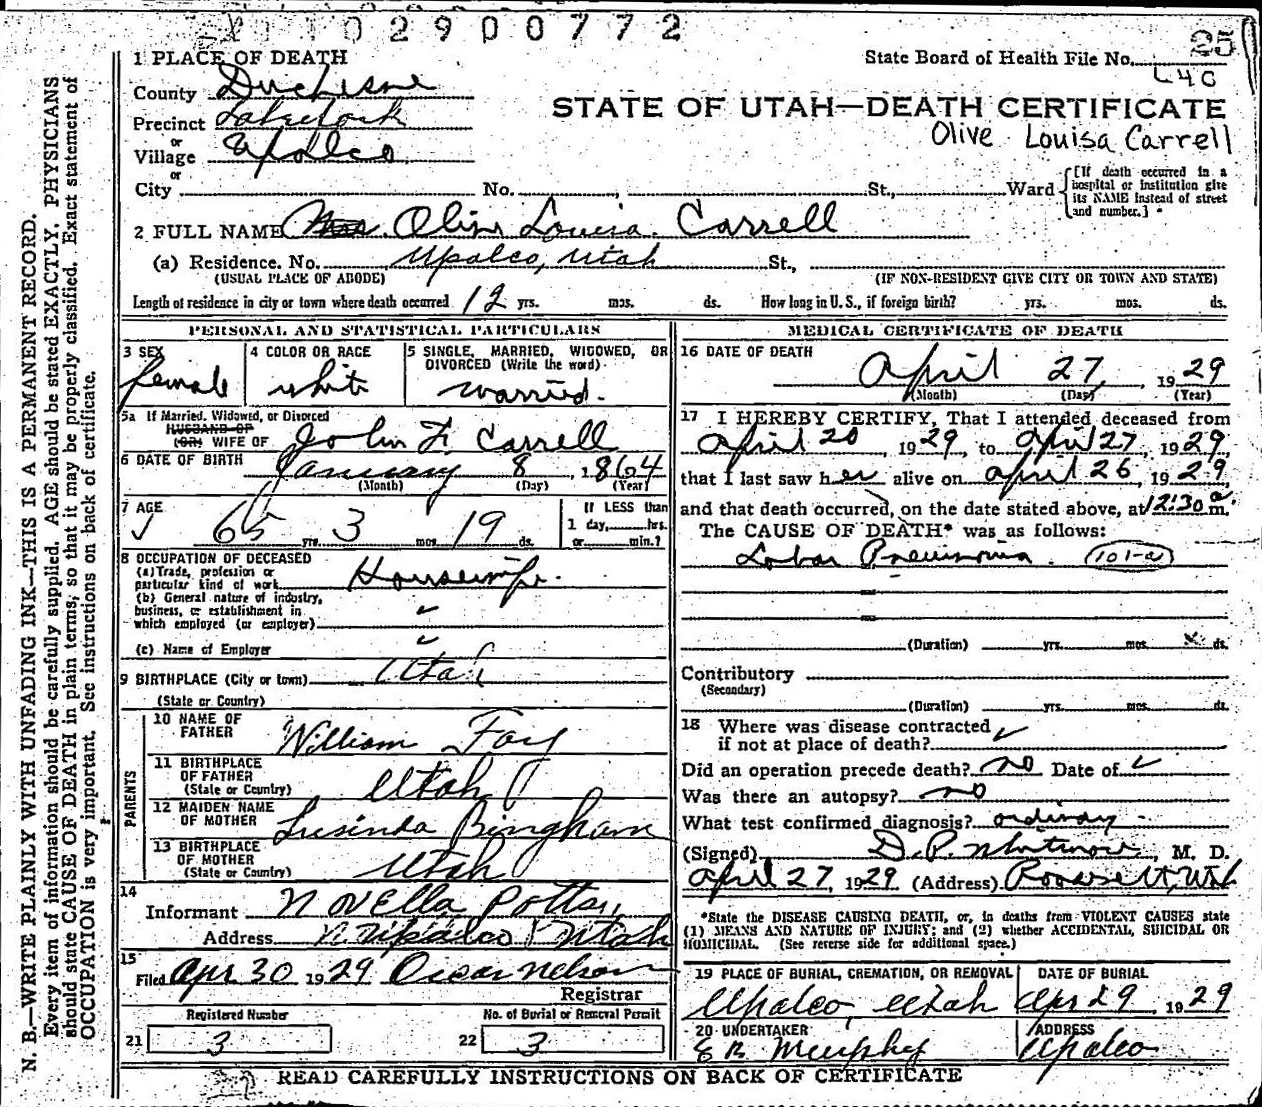 02900772
25
1 PLACE OF DEATH
State Board of Health File No.
L40
County Duchesne
STATE OF UTAH—DEATH CERTIFICATE
Precinct Lakefork
Olive Louisa Carrell
or
Village Upalco
or
City No. , St., Ward
[If death occurred in a hospital or institution give its NAME instead of street and number.]
2 FULL NAME Mrs. Olive Louisa Carrell
(a) Residence. No. Upalco, Utah St.,
(USUAL PLACE OF ABODE) (IF NON-RESIDENT GIVE CITY OR TOWN AND STATE)
Length of residence in city or town where death occurred 12 yrs. mos. ds. How long in U. S., if foreign birth? yrs. mos. ds.
PERSONAL AND STATISTICAL PARTICULARS
3 SEX
female
4 COLOR OR RACE
white
5 SINGLE, MARRIED, WIDOWED, OR
DIVORCED (Write the word)
married.
5a If Married, Widowed, or Divorced
HUSBAND OF
(OR) WIFE OF John F. Carrell
6 DATE OF BIRTH January 8, 1864
(Month) (Day) (Year)
7 AGE
65 yrs. 3 mos. 19 ds.
If LESS than
1 day, hrs.
or min.?
8 OCCUPATION OF DECEASED
(a) Trade, profession or
particular kind of work Housewife.
(b) General nature of industry,
business, or establishment in
which employed (or employer)
(c) Name of Employer
9 BIRTHPLACE (City or town) Utah
(State or Country)
PARENTS
10 NAME OF
FATHER William Foy
11 BIRTHPLACE
OF FATHER
(State or Country) Utah
12 MAIDEN NAME
OF MOTHER Lusinda Bingham
13 BIRTHPLACE
OF MOTHER
(State or Country) Utah
14
Informant Novella Potter,
Address N. Upalco Utah
15
Filed Apr 30 1929 Oscar Nelson
Registrar
Registered Number
21 3
No. of Burial or Removal Permit
22 3
MEDICAL CERTIFICATE OF DEATH
16 DATE OF DEATH
April 27, 1929
(Month) (Day) (Year)
17 I HEREBY CERTIFY, That I attended deceased from
April 20, 1929, to April 27, 1929,
that I last saw her alive on April 26, 1929,
and that death occurred, on the date stated above, at 12:30 a m.
The CAUSE OF DEATH* was as follows:
Lobar Pneumonia. 101-a
(Duration) yrs. mos. x ds.
Contributory
(Secondary)
(Duration) yrs. mos. ds.
18 Where was disease contracted
if not at place of death?
Did an operation precede death? no Date of
Was there an autopsy? no
What test confirmed diagnosis? ordinary
(Signed) D. P. Whitmore, M. D.
April 27, 1929 (Address) Roosevelt, Utah
*State the DISEASE CAUSING DEATH, or, in deaths from VIOLENT CAUSES state
(1) MEANS AND NATURE OF INJURY; and (2) whether ACCIDENTAL, SUICIDAL OR
HOMICIDAL. (See reverse side for additional space.)
19 PLACE OF BURIAL, CREMATION, OR REMOVAL
Upalco, Utah
DATE OF BURIAL
Apr 29, 1929
20 UNDERTAKER
E R Murphy
ADDRESS
Upalco
READ CAREFULLY INSTRUCTIONS ON BACK OF CERTIFICATE
N. B.—WRITE PLAINLY WITH UNFADING INK—THIS IS A PERMANENT RECORD.
Every item of information should be carefully supplied. AGE should be stated EXACTLY. PHYSICIANS
should state CAUSE OF DEATH in plain terms, so that it may be properly classified. Exact statement of
OCCUPATION is very important. See instructions on back of certificate.